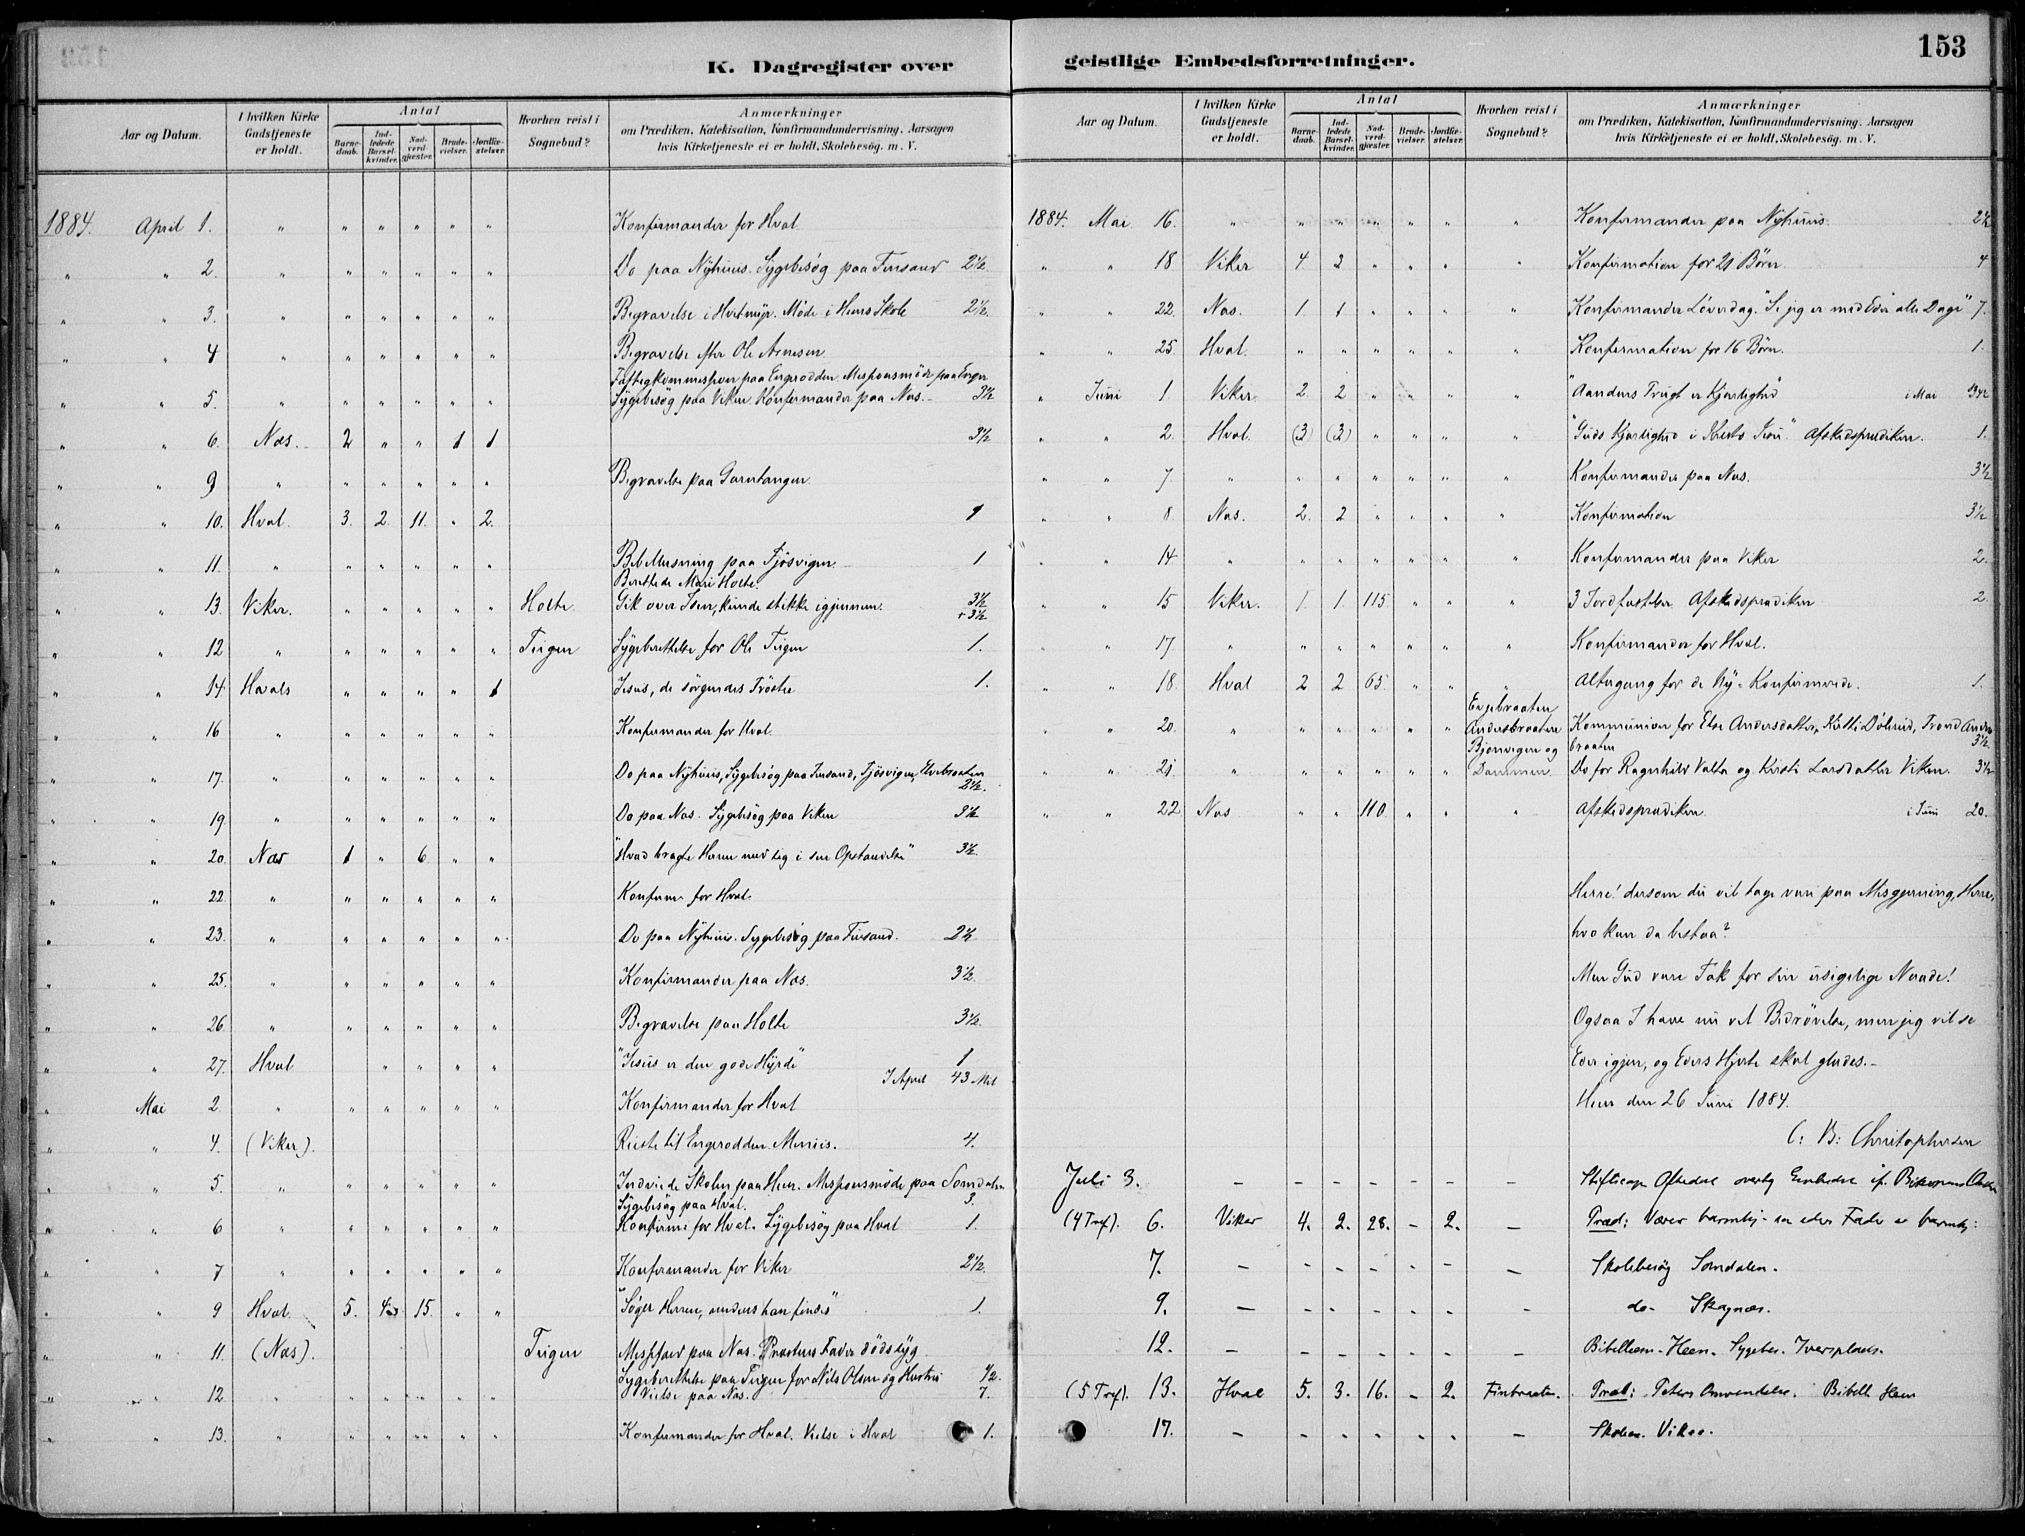 153
K. Dagregister over
geistlige Embedsforretninger.
Aar og Datum.
I hvilken Kirke Gudstjeneste er holdt.
Antal
Barnedaab.
Indledede Barselkvinder.
Nadverdgjæster.
Brudevielser.
Jordfæstelser.
Hvorhen reist i Sognebud?
Anmærkninger
om Prædiken, Katekisation, Konfirmandundervisning, Aarsagen
hvis Kirketjeneste ei er holdt, Skolebesøg. m. V.
1884. April 1. " " " " " " Konfirmander for Hval
" " 2. " " " " " " Do paa Nyhuus. Sygebesøg paa Finsand 2½
" " 3. " " " " " " Begravelse i Hvetmyr. Møde i Heens Skole 2½.
" " 4 " " " " " " Begravelse efter Ole Arnesen
Fattigkommission paa Engerodden. Missionsmøde paa Enger
" " 5. " " " " " " Sygebesøg paa Viken. Konfirmander paa Næs. 3½
" " 6. Næs. 2 " " 1 1 3½
" " 9 " " " " " " Begravelse paa Garntangen
" " 10. Hval. 3. 2. 11. " 2. 1
" " 11. " " " " " " Bibellæsning paa Fjøsvigen. 1
Berettede Mari Holte.
" " 13. Viker. " " " " " Holte. Gik over Isen, kunde stikke igjennem. 3½ + 3½
" " 12 " " " " " " Tirgen Sygeberettelse for Ole Tirgen 1.
" " 14. Hvals " " " " 1 Jesus, de sørgendes Trøster 1.
" " 16 " " " " " " Konfirmander for Hval
" " 17. " " " " " " Do paa Nyhuus, Sygebesøg paa Finsand, Fjøsvigen, Elvebraaten 2½.
" " 19. " " " " " " Do paa Næs. Sygebesøg paa Viken 3½
" " 20. Næs 1 " 6 " " "Hvad bragte Herren med sig i sin Opstandelse" 3½.
" " 22. " " " " " " Konfirm for Hval.
" " 23. " " " " " " Do paa Nyhuus. Sygebesøg paa Finsand. 2½
" " 25. " " " " " " Konfirmander paa Næs. 3½.
" " 26. " " " " " " Begravelse paa Holte 3½.
" " 27. Hval " " " " "Jesus er den gode Hyrde" 1
I April 43 Mil
" Mai 2 " " " " " " Konfirmander for Hval
" " 4. (Viker). Reiste til Engerodden. 4.
" " 5. " " " " " " Indviede Skolen paa Heen. Missionsmøde paa Somdalen 3.
Sygebesøg paa Hval.
" " 6 " " " " " " Konfirm for Hval. Sygebesøg paa Hval 1.
" " 7 " " " " " " Konfirmander for Viker 2½.
" " 9 Hval. 5. 4 15. " " "Søger Herren, medens han findes" 1.
" " 11. (Næs). Tirgen paa Næs. Præstens Fader dødssyg
Sygeberettelse paa Tirgen for Nils Olsen og Hustru ½.
" " 12. " " " " " " Vielse paa Næs. 7.
" " 13. " " " " " " Konfirmander for Hval. Vielse i Hval 1.
1884. Mai 16. " " " " " " " Konfirmander paa Nyhuus. 2½
" " 18. Viker 4 2 " " " " Konfirmation for 21 Børn. 4
" " 22. Næs. 1. 1 " " " " Konfirmander Løverdag. "Se jeg er med Eder alle Dage" 7.
" " 25. Hval. " " " " " " Konfirmation for 16 Børn. 1.
" Juni 1. Viker. 2 2 " " " " "Aandens Frugt er Kjærlighed" i Mai 34½
" " 2. Hval. (3) (3) " " " " "Guds Kjærlighed i Kristo Jesu" Afskedsprædiken. 1.
" " 7. " " " " " " " Konfirmander paa Næs. 3½
" " 8 Næs. 2. 2 " " " " Konfirmation 3½
" " 14 " " " " " " " Konfirmander paa Viker 2.
" " 15 Viker. 1. 1. 115 " " " 3 Jordfæstelser Afskedsprædiken 2.
" " 17. " " " " " " " Konfirmander for Hval.
" " 18. Hval 2 2 65. " " " Altergang for de Ny-Konfirmerede. 1.
Elvebraaten
" " 20. " " " " " " Andersbraaten Kommunion for Else Andersdatter, Kirsti Dølerud, Trond Anders
Bjørnvigen og braaten 3½.
" " 21 " " " " " " Dammen. Do for Ragnhild Valta og Kirsti Larsdatter Viken. 3½
" " 22 Næs " " 110. " " " Afskedsprædiken i Juni 20.
Herre! dersom du vil tage vare paa Misgjerning, Herre,
hvo kan da bestaa?
Men Gud være Tak for sin usigelige Naade!
Ogsaa I have nu vel Bedrøvelse, men jeg vil se
Eder igjen, og Eders Hjerte skal glædes.-
Heen den 26 Juni 1884.
C: B: Christophersen
Juli 3. - - - - - - - Stiftscap. Oftedal overtog Embedet
(4 Tref). 6. Viker 4. 2. 28. - 2. - Præd: Værer barmhj. som eders Fader er barmhj:
7. - - - - - - - Skolebesøg Somdalen.
9. - - - - - - - do- Skagnæs.
12. - - - - - - - Bibellæsn. Heen. Sygebes. Iversplads.
(5 Tref). 13. Hval 5. 3. 16. - 2. Finbraaten. Præd: Peters Omvendelse. Bibell. Heen
17. - - - - - - - Skolen. Viker.